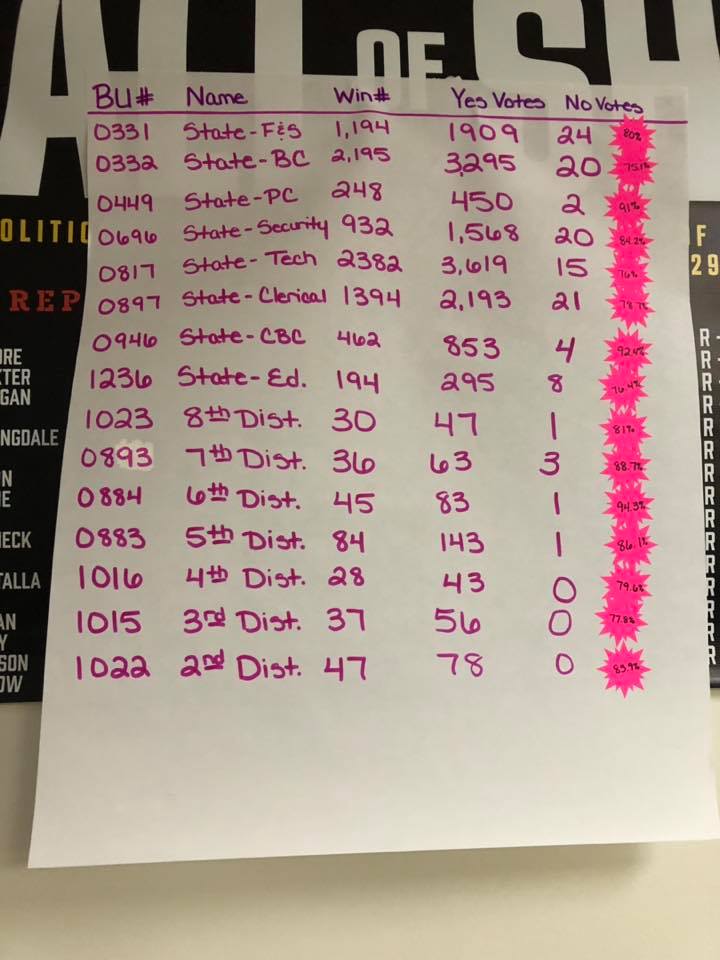 ALL OF SH
BU# Name Win# Yes Votes No Votes
0331 State-F&S 1,194 1909 24 80%
0332 State-BC 2,195 3,295 20 75.1%
0449 State-PC 248 450 2 91%
0696 State-Security 932 1,568 20 84.2%
0817 State-Tech 2382 3,619 15 76%
0897 State-Clerical 1394 2,193 21
0946 State-CBC 462 853 4 92.4%
1236 State-Ed. 194 295 8 76.4%
1023 8th Dist. 30 47 1 81%
0893 7th Dist. 36 63 3 88.7%
0884 6th Dist. 45 83 1 94.3%
0883 5th Dist. 84 143 1 86.1%
1016 4th Dist. 28 43 0 79.6%
1015 3rd Dist. 37 56 0 77.8%
1022 2nd Dist. 47 78 0 83.9%
OLITIC
REP
ORE
XTER
GAN
NGDALE
N
E
HECK
TALLA
AN
Y
SON
OW
F
29
R -
R -
R
R
R
R
R
R
R
R
R
R
R
R
R